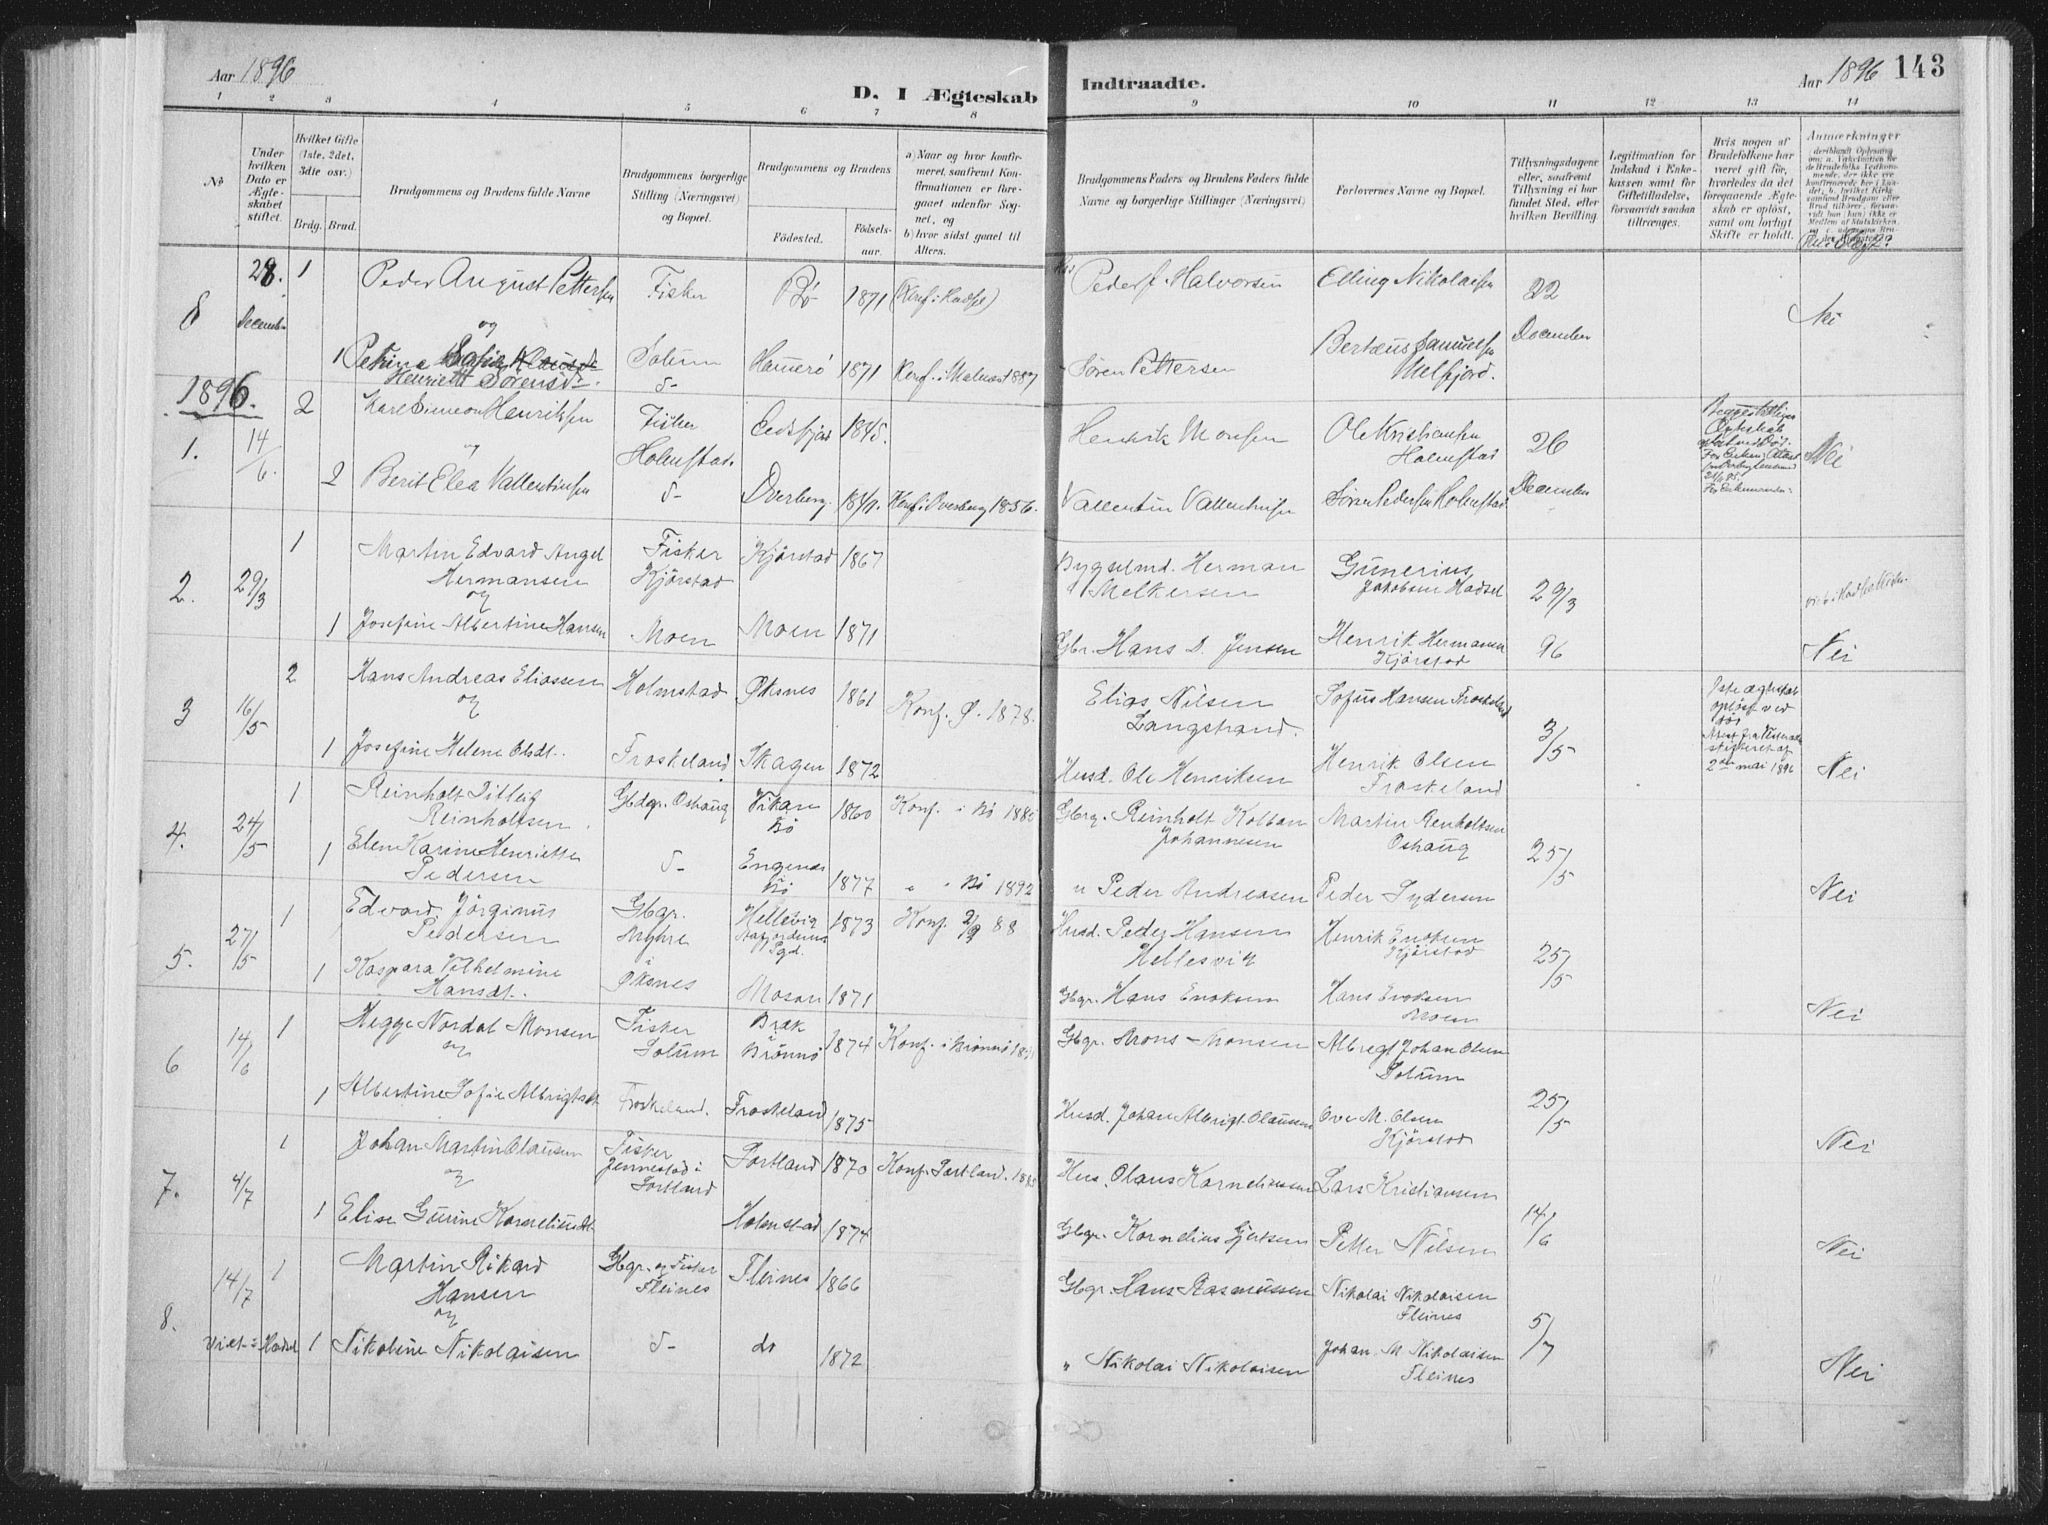 Aar 1896
D. I Ægteskab
Indtraadte.
Aar 1896
143
1 2 3 4 5 6 7 8 9 10 11 12 13 14
No
Under hvilken Dato er Ægteskabet stiftet.
Hvilket Gifte (1ste, 2det, 3die osv.)
Brdg. Brud.
Brudgommens og Brudens fulde Navne
Brudgommens borgerlige Stilling (Næringsvei) og Bopæl.
Brudgommens og Brudens
Fødested. Fødselsaar.
a) Naar og hvor konfirmeret, saafremt Konfirmationen er foregaaet udenfor Sognet, og
b) hvor sidst gaaet til Alters.
Brudgommens Faders og Brudens Faders fulde Navne og borgerlige Stillinger (Næringsvei)
Forlovernes Navne og Bopæl.
Tillysningsdagene eller, saafremt Tillysning ei har fundet Sted, efter hvilken Bevilling.
Legitimation for Indskud i Enkekassen samt for Giftetilladelse, forsaavidt saadan tiltrænges.
Hvis nogen af Brudefolkene har været gift før, hvorledes da det foregaaende Ægteskab er opløst, samt om lovligt Skifte er holdt.
Anmærkninger
8 28. Decemb. 1 Peder August Pettersen Fisker Bø 1871 (Konf. i Hadsel) Peder Halvorsen Elling Nikolaisen 22 December Nei
og
1 Petrine Henriett Sørensd. Solum Hamerø 1871 Søren Pettersen Bertæus Samuelsen Melfjord.
1896.
1. 14/6 2 Karl Simeon Henriksen Fisker Holmstad. Eidsfjord 1845. Henrik Monsen Ole Kristiansen Holmstad 26 December Nei
og
2 Berit Elea Vallentinsen d- Dverberg. Konf. i Dverberg 1856. Vallentin Vallentinsen Søren Pedersen Holmstad
2. 29/3 1 Martin Edvard Angel Hermansen Fisker Kjørstad Kjørstad 1867 Bygselmd. Herman Melkersen Gunerius Jakobsen Hadsel 29/3 96
og
1 Josefine Albertine Hansen Moen Moen 1871 Gbr. Hans D. Jensen Henrik Hermansen Kjørstad Nei
3 16/5 2 Hans Andreas Eliassen Holmstad Øksnes 1861 Konf. Ø. 1878. Elias Nilsen Langstrand. Sofus Hansen Froskeland 3/5 1ste ægteskab opløst ved død 2den mai 1896
og
1 Josefine Helene Olsdt. Froskeland Skagen 1872 Husd. Ole Henriksen Henrik Olsen Froskeland Nei
4. 24/5 1 Reinholt Ditleig Reinholtsen Gbdgr. Oshaug Vikan Bø 1860 Konf. i Bø Gbrg. Reinholt Koltan Johannesen Martin Renholtsen Oshaug 25/5
1 Elen Karine Henriette Pedersen d- Engenes Bø 1877 " " Bø 1892 " Peder Andreasen Peder Sydersen Nei
5. 27/5 1 Edvard Jørginus Pedersen Gbgr. Myhre i Øksnes Hellesvig Pgd. 1873 Konf. 88 Husd. Peder Hansen Hellesvik Henrik Enoksen Kjørstad 25/5
1 Kaspara Vilhelmine Hansdt. Mosan 1871 Gbgr. Hans Enoksen Hans Enoksen Moen Nei
6 14/6 1 Hegge Nordal Monsen Fisker Solum Bræk Brønnø 1874 Konf. i Brønnø Gbgr. Arons Monsen Albregt Johan Olsen Solum 25/5
og
1 Albertine Sofie Albrigtsdt Froskeland. Froskeland 1875 Husd. Johan Albrigt Olaussen Ove M. Olsen Kjørstad Nei
7. 4/7 1 Johan Martin Olausen Fisker Jennestad i Sortland Sortland 1870 Konf. Sortland. Hus. Olaus Korneliussen Lars Kristiansen 14/6
og
1 Elise Gurine Korneliusdt. Holmstad 1874 Gbgr. Kornelius Gjertsen Petter Nilsen Nei
8. 14/7 Viet i Hadsel 1 Martin Rikard Hansen Gbgr. og Fisker Fleines Fleines 1866 Gbgr. Hans Rasmussen Nikolai Nikolaisen Fleines 5/7
og
1 Nikoline Nikolaisen d- do 1872 " Nikolai Nikolaisen Johan M Nikolaisen Fleines Nei